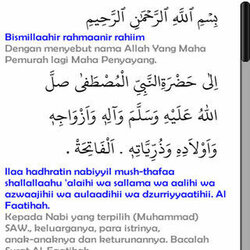 بِسْمِ اللَّهِ الرَّحْمَٰنِ الرَّحِيمِ
Bismillaahir rahmaanir rahiim
Dengan menyebut nama Allah Yang Maha
Pemurah lagi Maha Penyayang.
اِلَى حَضْرَةِ النَّبِيِّ الْمُصْطَفَى صَلَّ
اللهُ عَلَيْهِ وَسَلَّمَ وَآلِهِ وَاَزْوَاجِهِ
وَاَوْلَادِهِ وَذُرِّيَّاتِهِ . الْفَاتِحَةْ .
Ilaa hadhratin nabiyyil mush-thafaa
shallallaahu 'alaihi wa sallama wa aalihi wa
azwaajihii wa aulaadihii wa dzurriyyaatihii. Al
Faatihah.
Kepada Nabi yang terpilih (Muhammad)
SAW., keluarganya, para istrinya,
anak-anaknya dan keturunannya. Bacalah
Surat Al-Faatihah